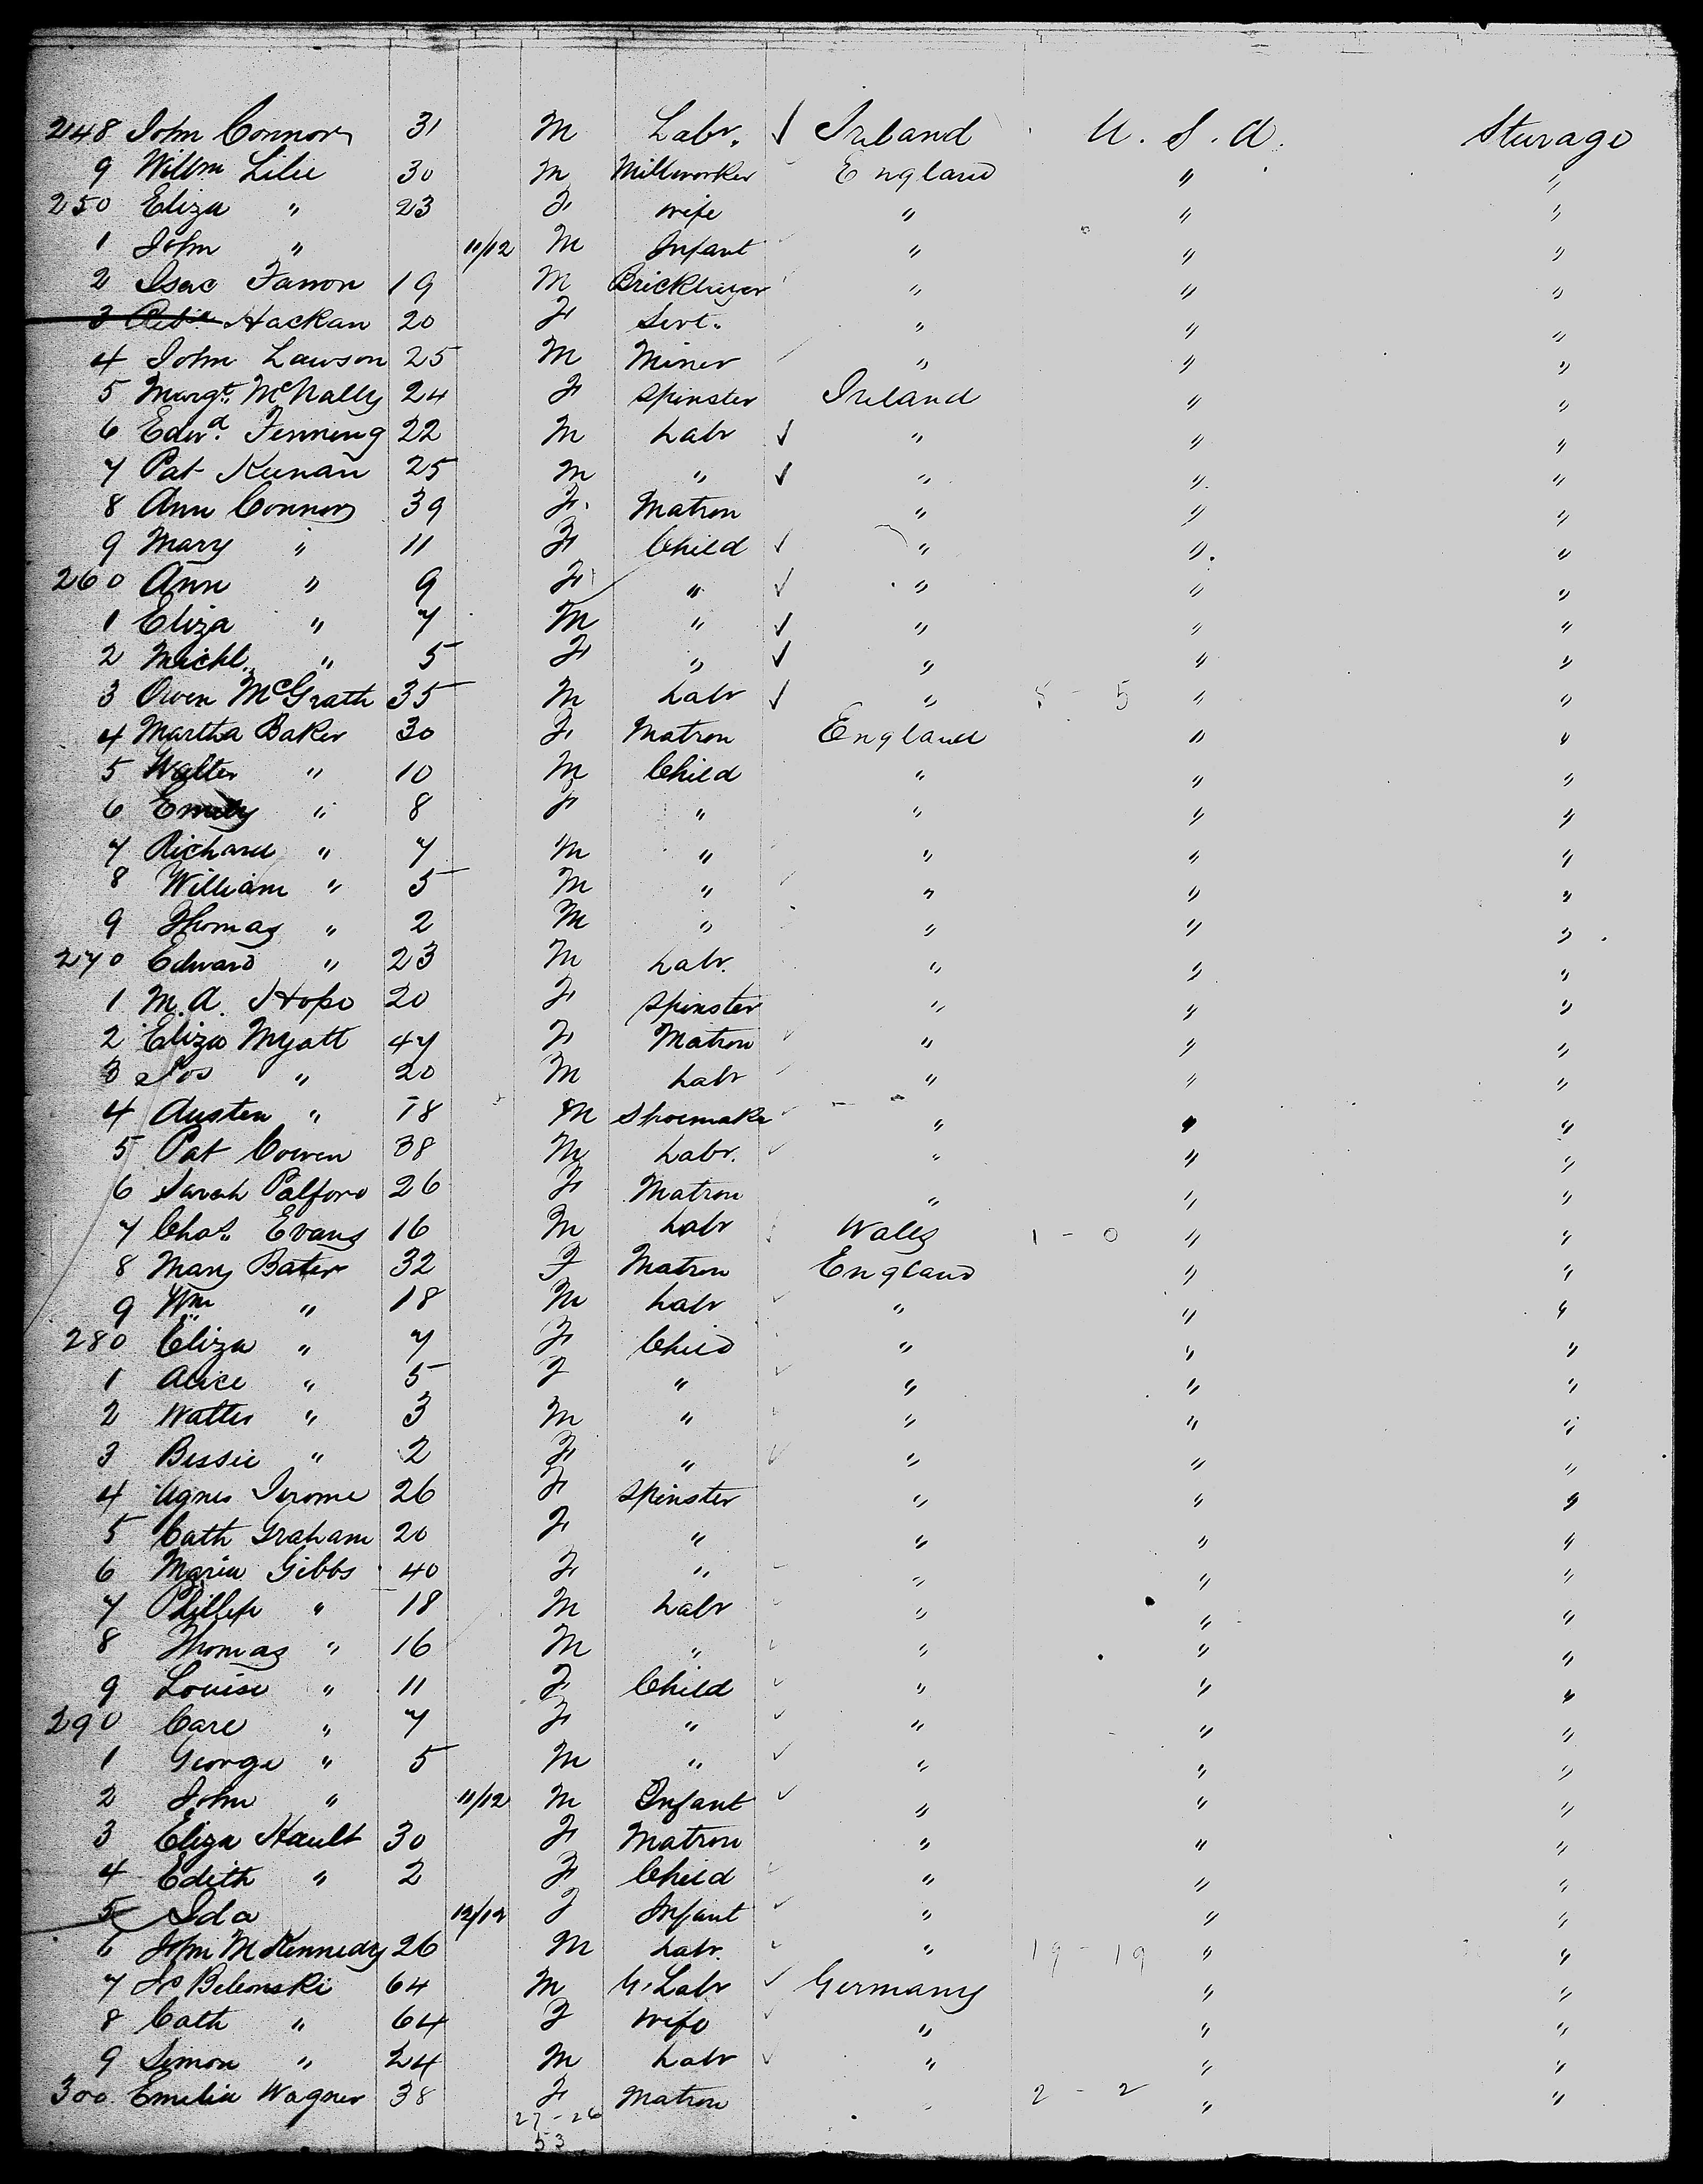 248 John Connors 31 M Labr. ✓ Ireland U.S.A. Sturage
9 Willm Lilie 30 M Millworker England " "
250 Eliza " 23 F wife " " "
1 John " 11/12 M Infant " " "
2 Isac Fanon 19 M Bricklayer " " "
3 Hackan 20 F Servt. " " "
4 John Lawson 25 M Miner " " "
5 Margt. McNally 24 F Spinster Ireland " "
6 Edwd. Fenning 22 M Labr ✓ " " "
7 Pat Keenan 25 M " ✓ " " "
8 Ann Connors 39 F. Matron " " "
9 Mary " 11 F Child ✓ " " "
260 Ann " 9 F " ✓ " " "
1 Eliza " 7 M " ✓ " " "
2 Michl. " 5 F " ✓ " " "
3 Owen McGrath 35 M Labr ✓ " 5 - 5 " "
4 Martha Baker 30 F. Matron England " "
5 Walter " 10 M Child " " "
6 Emily " 8 F " " " "
7 Richard " 7 M " " " "
8 William " 5 M " " " "
9 Thomas " 2 M " " " "
270 Edward " 23 M Labr. " " "
1 M.A. Hope 20 F Spinster " " "
2 Eliza Myatt 47 F Matron " " "
3 Jos " 20 M Labr " " "
4 Austen " 18 M Shoemaker " " "
5 Pat Cowen 38 M Labr. " " "
6 Sarah Palford 26 F Matron " " "
7 Chas. Evans 16 M Labr Wales 1 - 0 " "
8 Mary Bater 32 F Matron England " "
9 Wm " 18 M Labr " " "
280 Eliza " 7 F Child " " "
1 Alice " 5 F " " " "
2 Walter " 3 M " " " "
3 Bessie " 2 F " " " "
4 Agnes Jerome 26 F Spinster " " "
5 Cath Graham 20 F " " " "
6 Maria Gibbs 40 F " " " "
7 Phillip " 18 M Labr " " "
8 Thomas " 16 M " " " "
9 Louise " 11 F Child " " "
290 Care " 7 F " " " "
1 George " 5 M " " " "
2 John " 11/12 M Infant " " "
3 Eliza Hault 30 F Matron " " "
4 Edith " 2 F Child " " "
5 Ida 12/12 F Infant " " "
6 John McKennedy 26 M Labr. " 19 - 19 " "
7 Belionski 64 M Labr ✓ Germany " "
8 Cath " 64 F Wife " " "
9 Simon " 24 M Labr " " "
300 Emelia Wagner 38 F Matron 2 - 2 " "
27 - 26
53